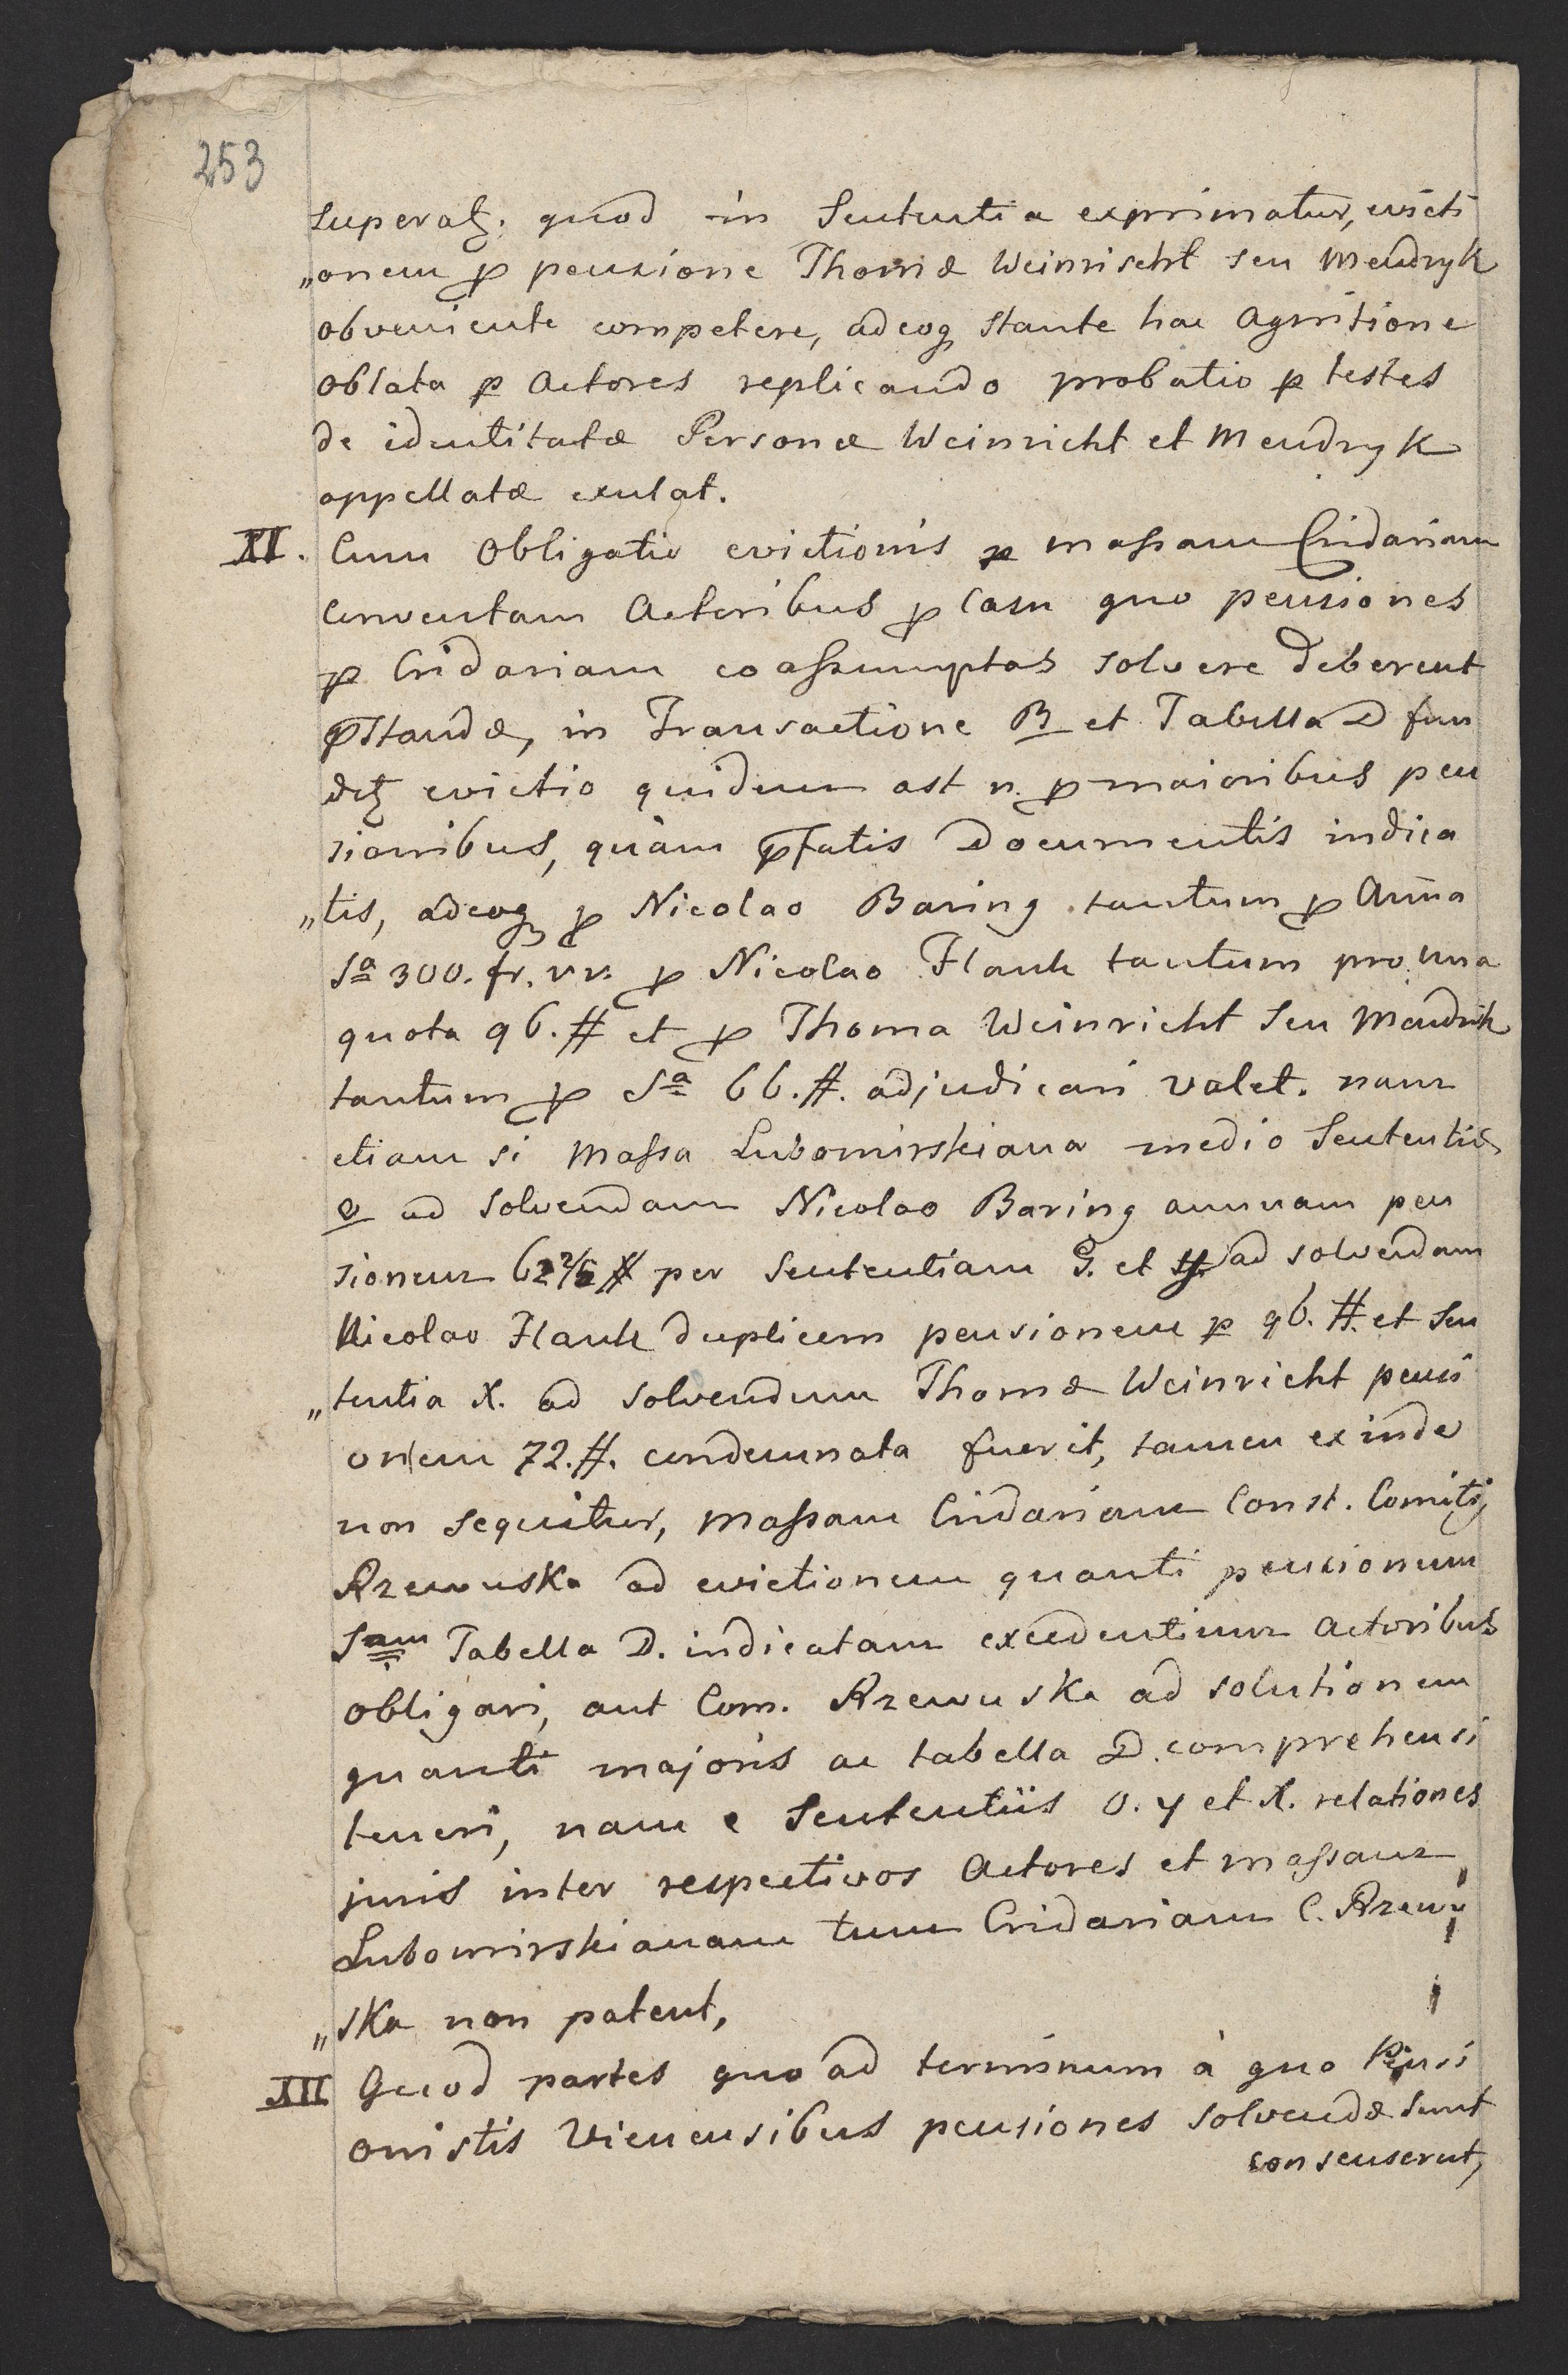 253
superatʒ. quod in Sententia exprimatur, evicti
„onem ꝓ pensione Thomæ Weinricht seu Mendryk
obveniente competere, adeoq stante hac Agnitione
oblata ꝑ Actores replicando probatio ꝑ testes
de identitatæ Personæ Weinricht et Mendryk
appellatæ exulat.
XI. Cum Obligatio evictionis ꝑ massam Cridariam
Conventam Actoribus ꝓ Casu quo pensiones
ꝑ Cridariam coassumptas solvere deberent
pstandæ, in Transactione B et Tabella D fun
detʒ evictio quidem ast n. ꝓ maioribus pen
sionibus, quàm pfatis Documentis indica
„tis, adeoq ꝓ Nicolao Baring tantum ꝓ Añua
Sa 300. fr. vv. ꝓ Nicolao Flauk tantum pro una
quota 96. # et ꝓ Thoma Weinricht seu Mendrik
tantum ꝓ Sa 66. #. adjudicari valet. nam
etiam si Massa Lubomirskiana medio Sententiæ
O ad solvendam Nicolao Baring annuam pen
sionem 62 2/6 # per Sententiam G. et Y. ad solvendam
Nicolao Flauk duplicem pensionem ꝑ 96. #. et Sen
„tentia X. ad solvendum Thomæ Weinricht pensi
onem 72. #. condemnata fuerit, tamen exinde
non sequitur, Massam Cridariam Const. Comitis
Rzewuska ad evictionem quanti pensionum
Sam Tabella D. indicatam excedentium Actoribus
obligari, aut Com. Rzewuska ad solutionem
quanti majoris ac tabella D. comprehensi
teneri, nam e Sententiis O. Y et X. relationes
juris inter respectivos Actores et Massam
Lubomirskianam tum Cridariam C. Rzewu
„ska non patent,
XII Quod partes quo ad terminum à quo Pensi
onistis Vienensibus pensiones solvendæ sunt
consenserut,